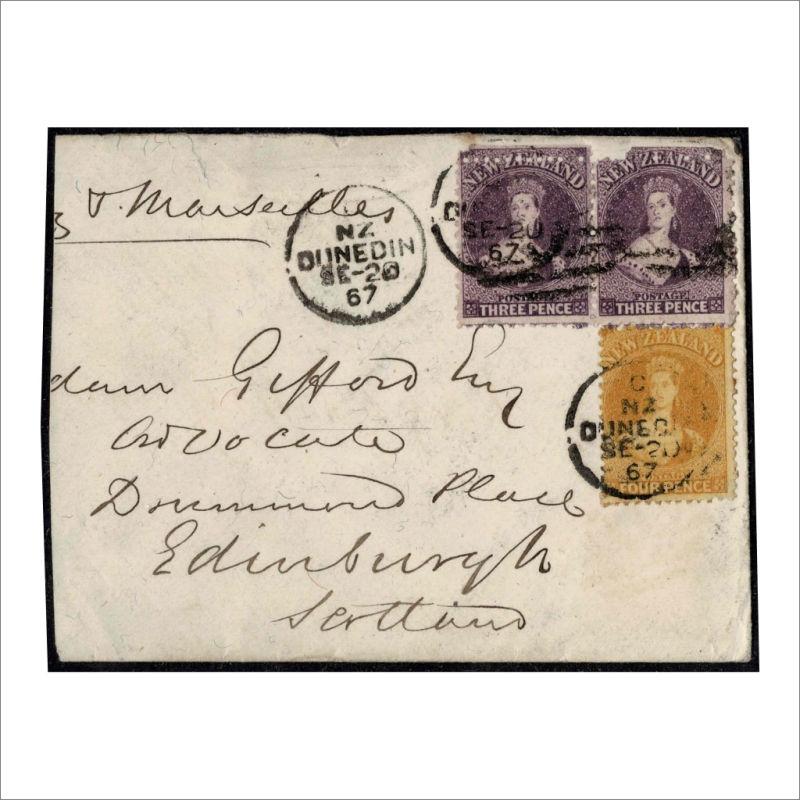 & Marseilles
NZ
DUNEDIN
SE-20
67
DU
SE-20
67
NEW ZEALAND
POSTAGE
THREE PENCE
NEW ZEALAND
POSTAGE
THREE PENCE
NEW ZEALAND
FOUR PENCE
C
NZ
DUNEDI
SE-20
67
dam Gifford Esq
Advocate
Drummond Place
Edinburgh
Scotland